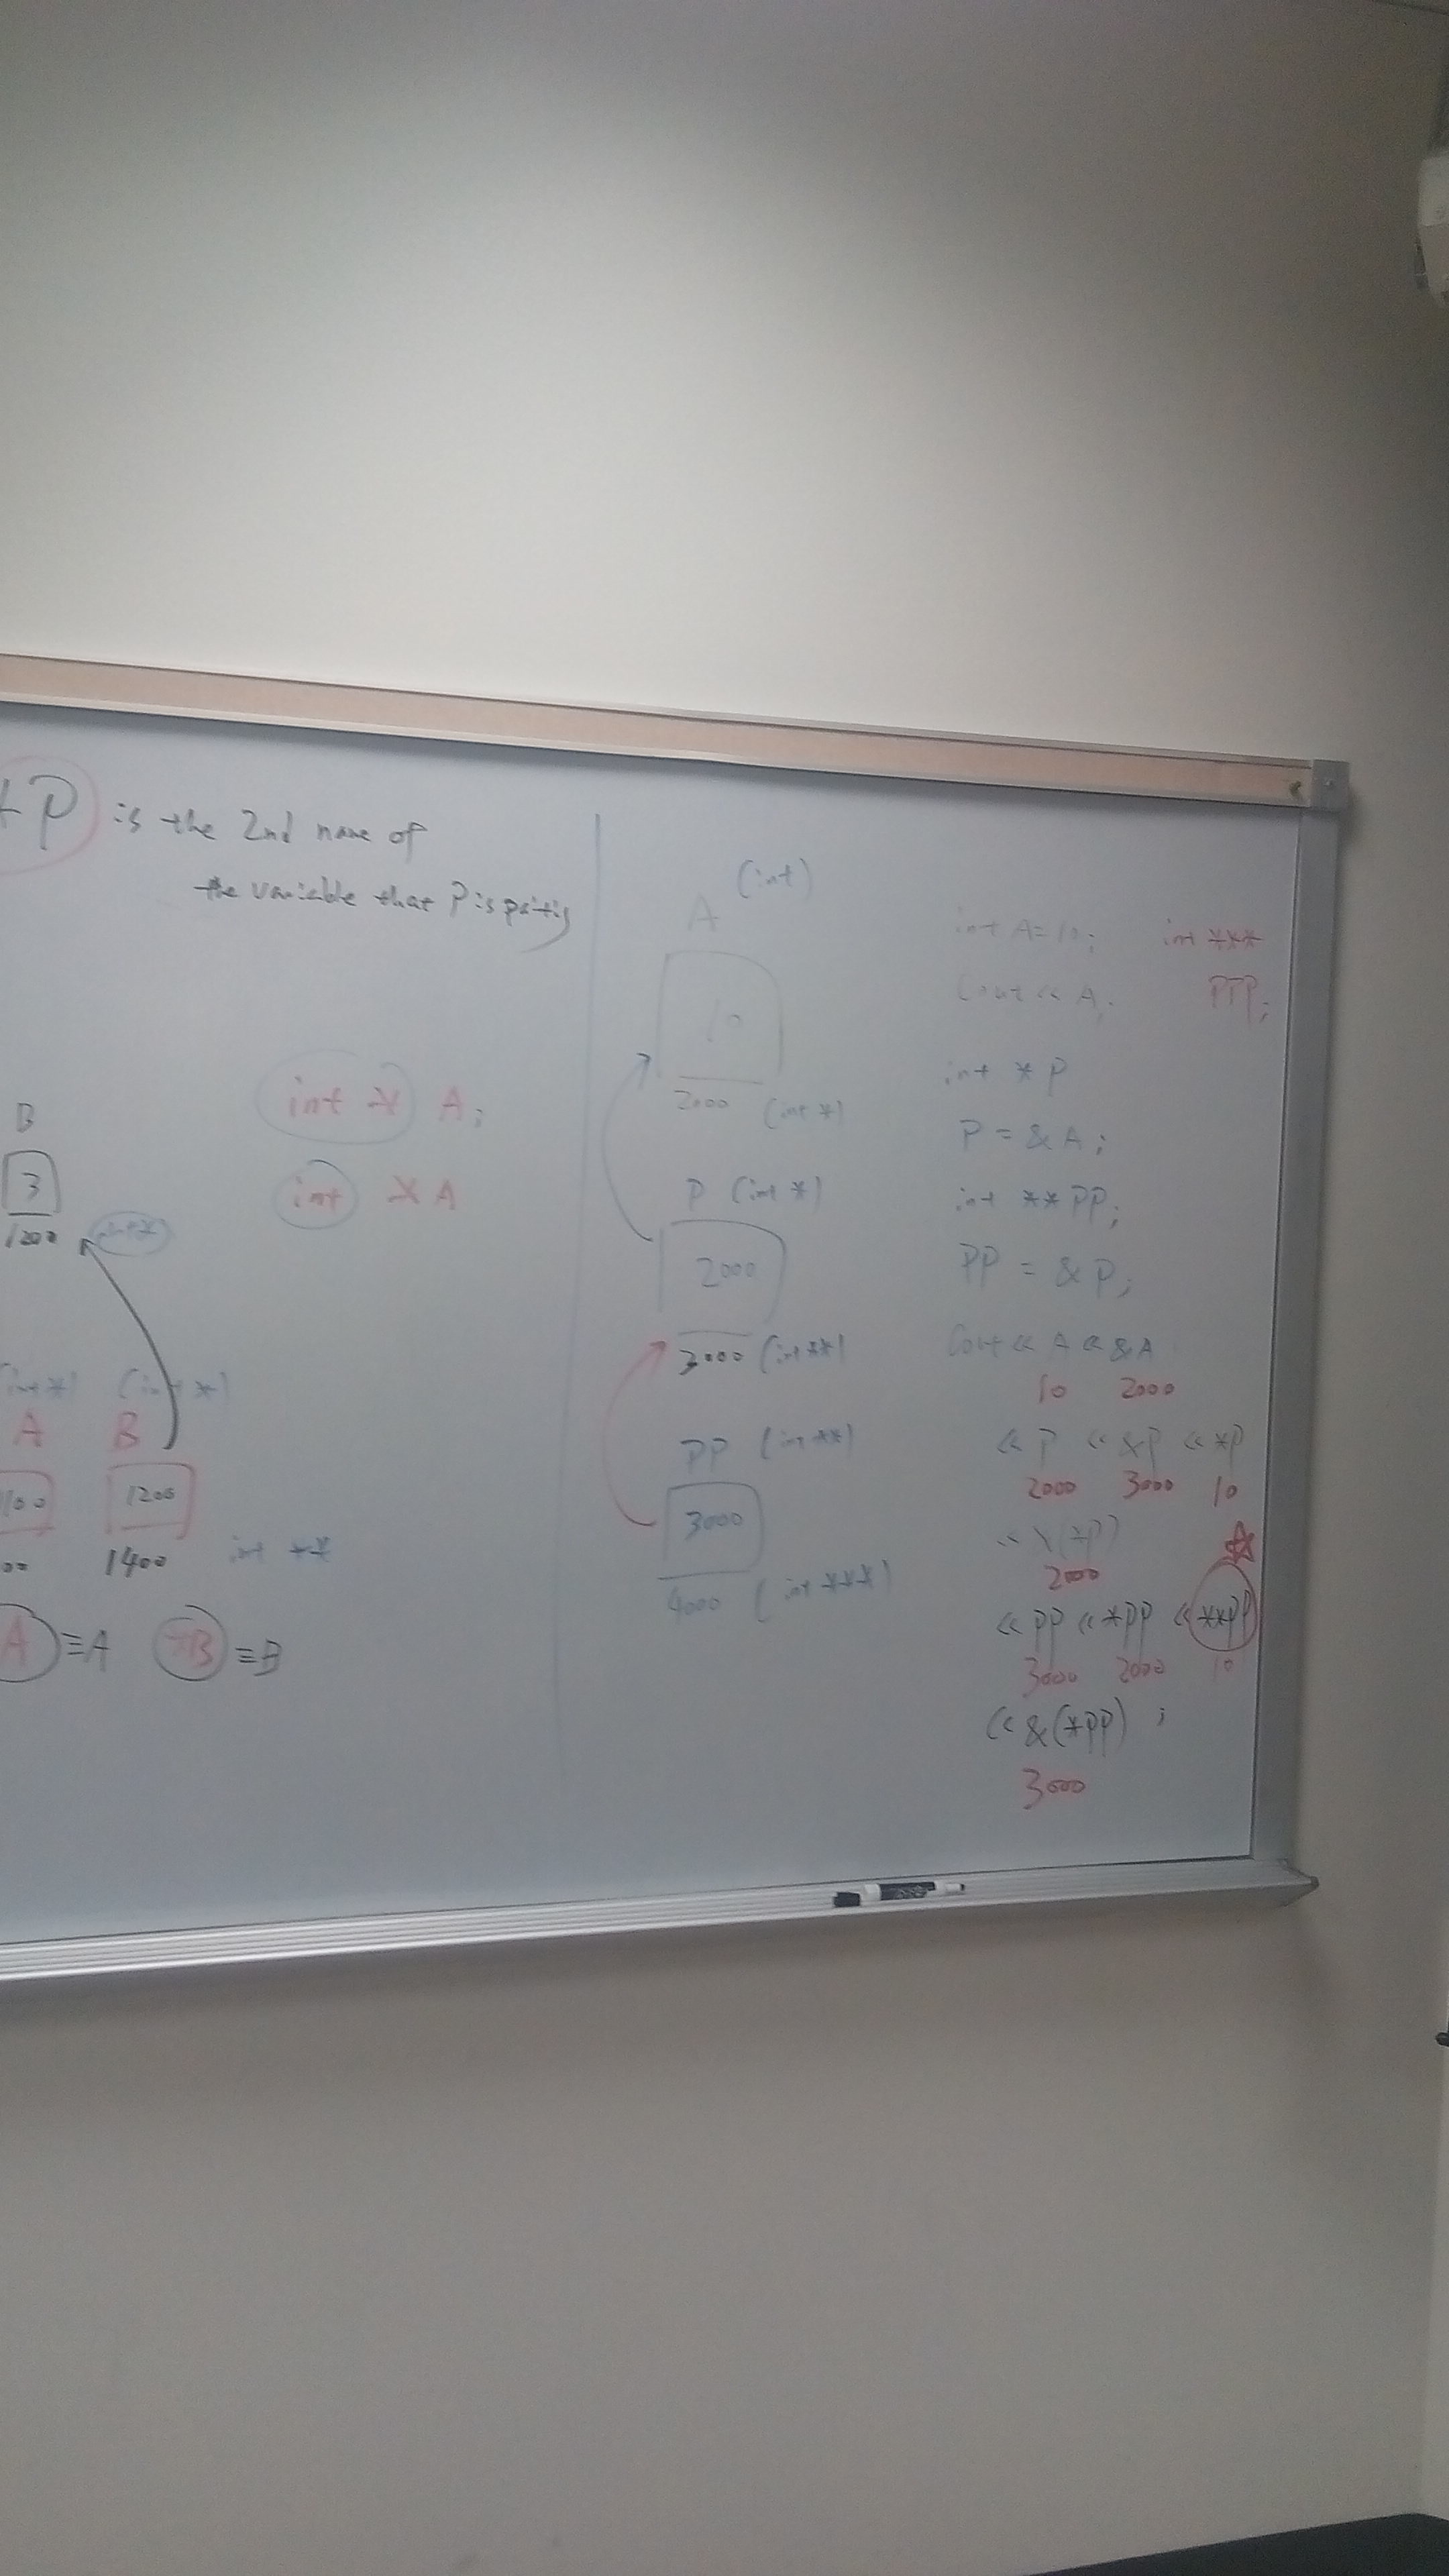 *P is the 2nd name of
the variable that P is
int * A;
int * A
B
3
1200
(int*) (int*)
A B
1200
1400 int **
≡A *B ≡B
A (int)
10
2000 (int *)
P (int *)
2000
3000 (int **)
PP (int **)
3000
4000 (int ***)
int A=10; int ***
Cout << A; PPP;
int * P
P = & A;
int ** PP;
PP = & P;
Cout << A << &A
10 2000
<< P << &P << *P
2000 3000 10
<< &(*P)
2000
<< PP << *PP << **PP
3000 2000 10
<< &(*PP) ;
3000